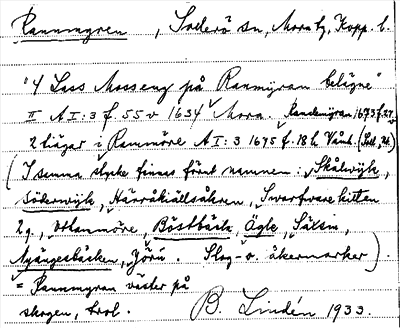 Ranmyren, Sollerö sn, Mora tg, Kopp. l.
"4 Lass Mosseng på Ranmÿran belägne"
II AI:3 f. 55v 1634 Mora. Randemÿran 1673 f. 27,
2 liägar i Rammöre AI:3 1675 f. 18
(I samma stycke finnas förut namnen: Skålwijk,
Söderwijk, Härråkiällsåkren, Swarfware kitten
2g., Holanmöre, Böstback, Ägle, Sälsin,
Ngångesbäcken, Jöru. Slog- o. åkermarker).
= Rannmyran väster på
skogen, trol. B. Lindén 1933.